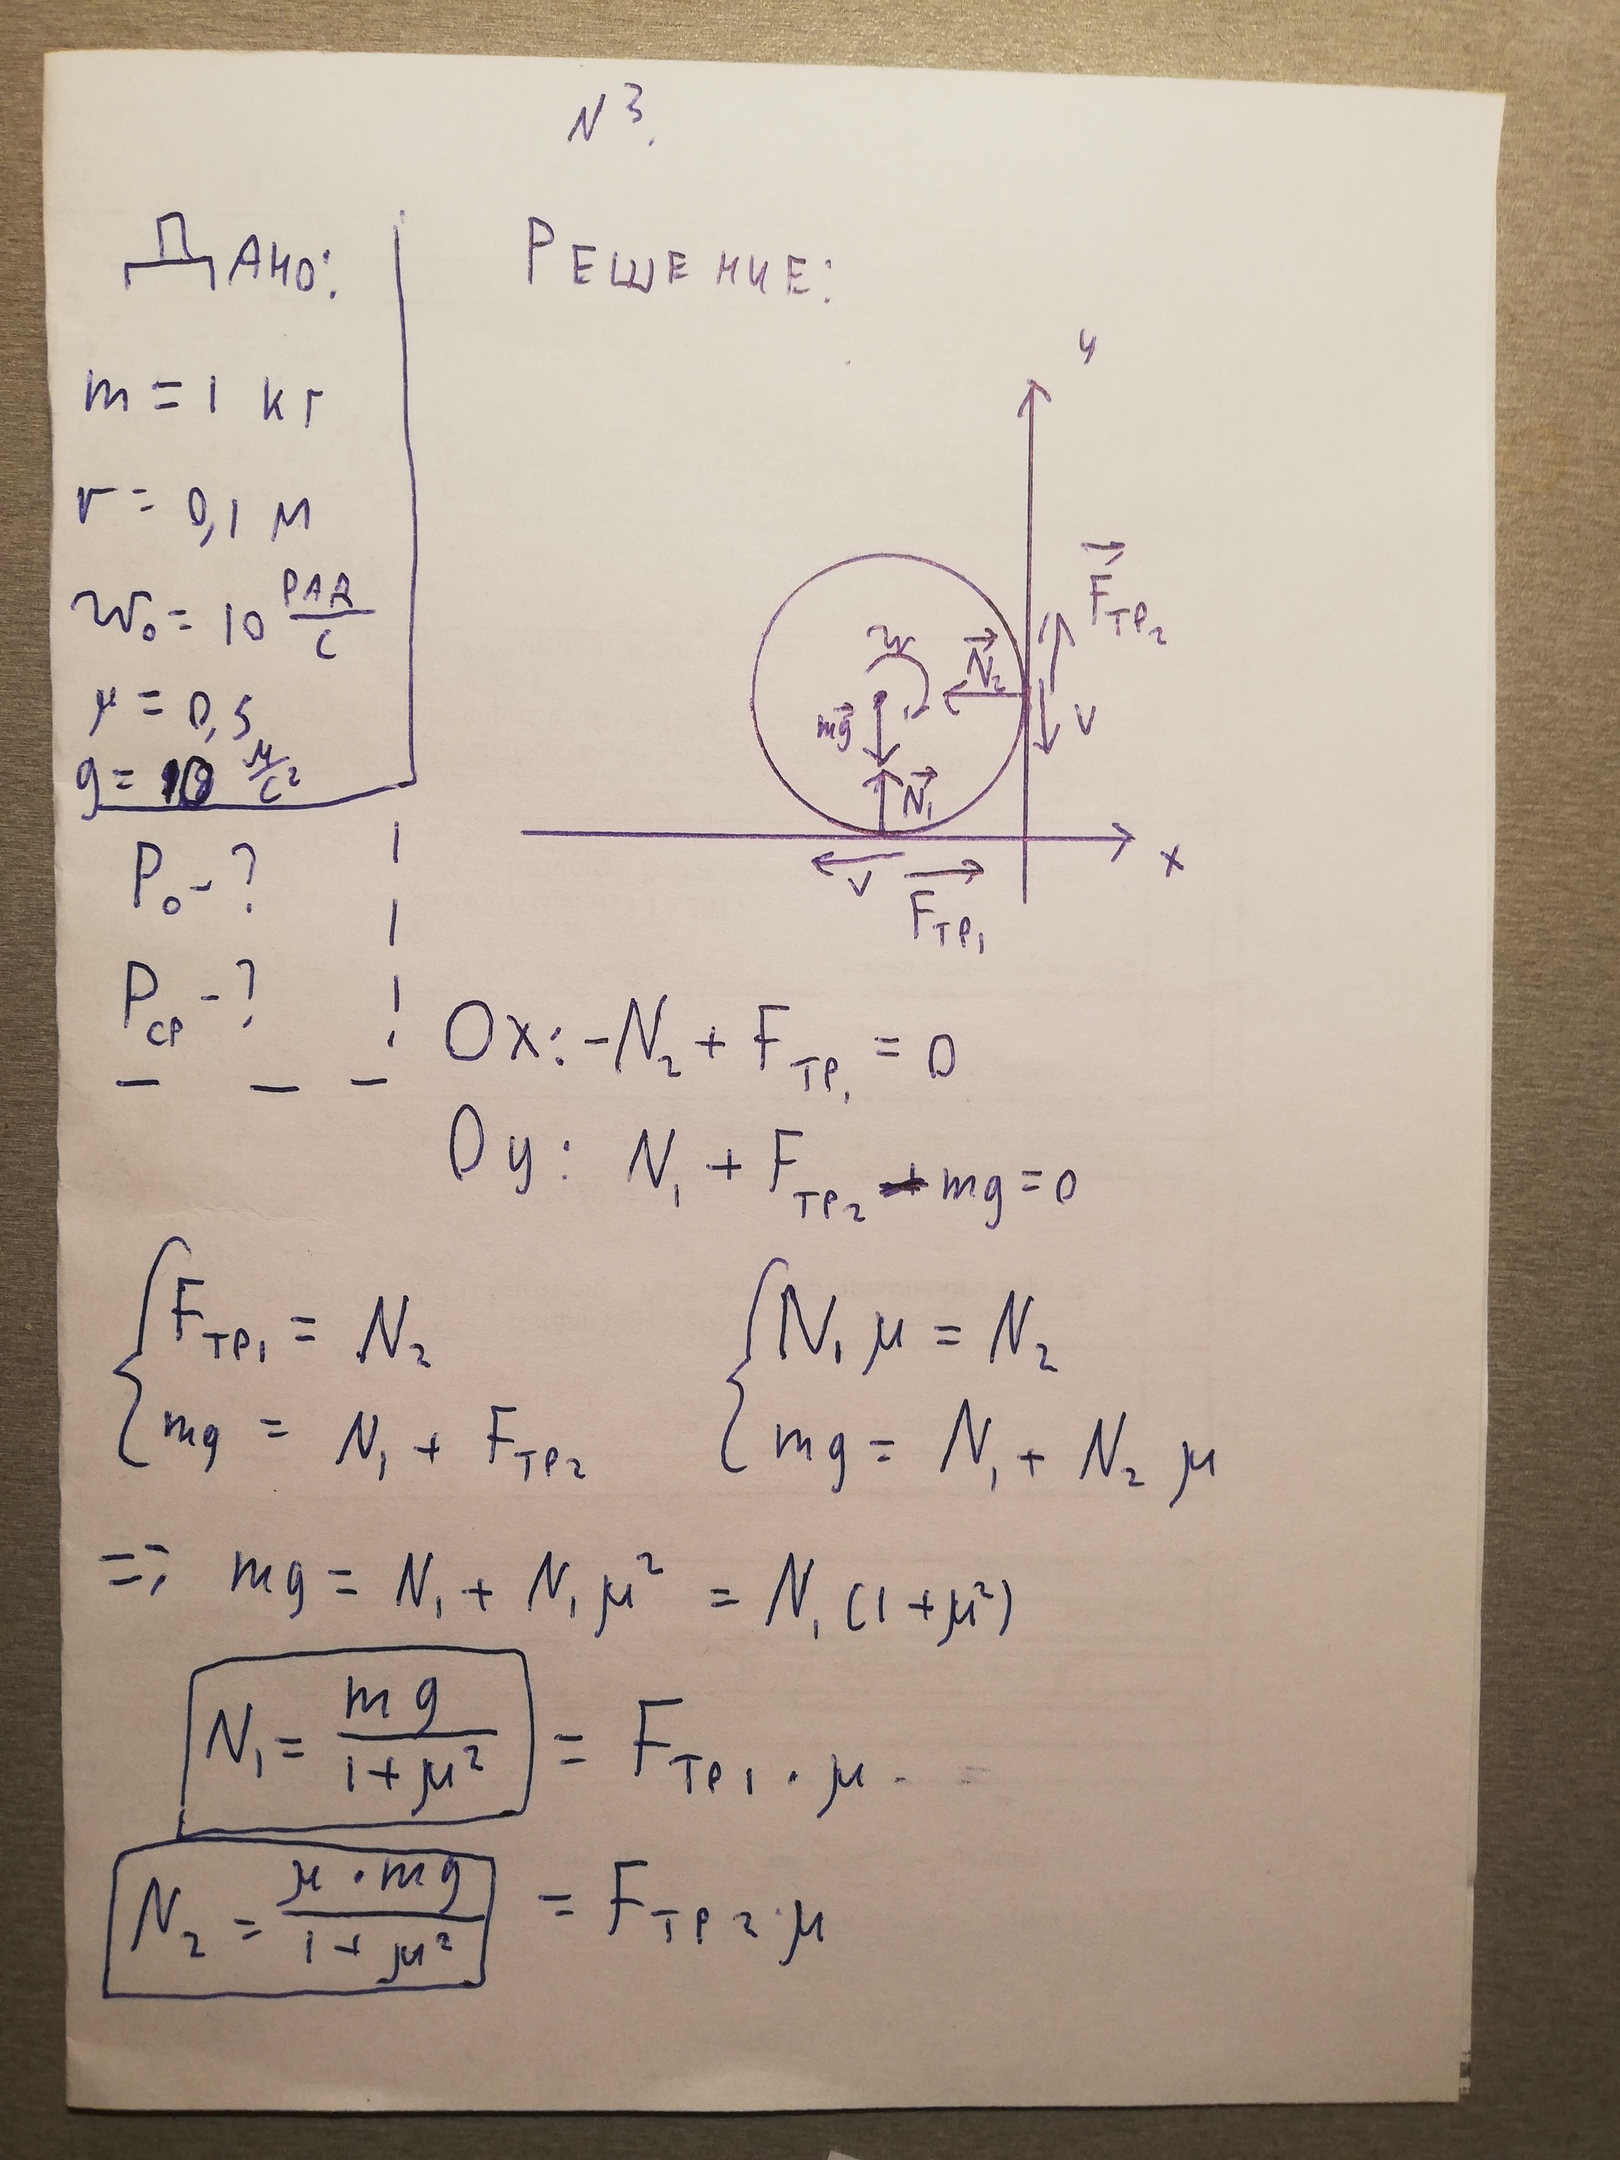 N 3.
Дано:
m = 1 кг
r = 0,1 м
ω₀ = 10 рад/с
μ = 0,5
g = 10 м/с²
P₀ - ?
Pср - ?
Решение:
y
F⃗тр₂
ω
N⃗₂
mg⃗
V
N⃗₁
x
V
F⃗тр₁
Ox: -N₂ + Fтр₁ = 0
Oy: N₁ + Fтр₂ - mg = 0
{ Fтр₁ = N₂
mg = N₁ + Fтр₂
{ N₁ μ = N₂
mg = N₁ + N₂ μ
=> mg = N₁ + N₁ μ² = N₁ (1 + μ²)
N₁ = mg/(1 + μ²) = Fтр₁ · μ
N₂ = μ · mg/(1 + μ²) = Fтр₂ · μ